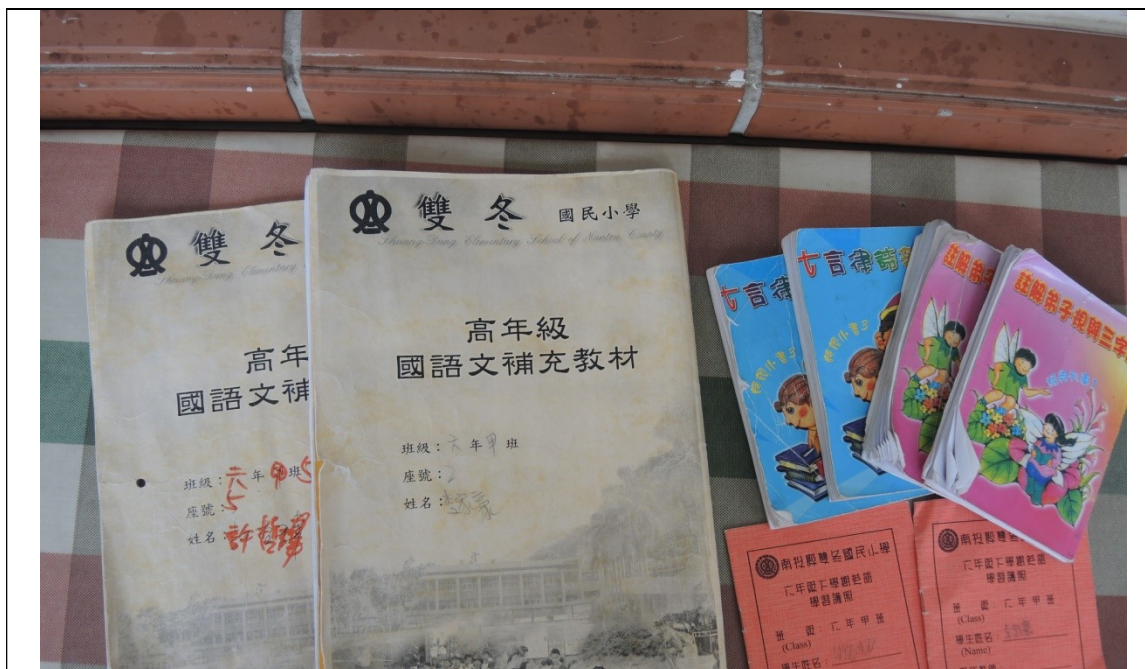 雙 冬
高年
國語文補
班級：六 年 甲 班
座號：5
姓名：許
雙 冬 國民小學
Shuang-Dung Elementary School of Nantou County
高年級
國語文補充教材
班級：六 年 甲 班
座號：2
姓名：
七言律
七言律詩
註解弟子
註解弟子規與三字
南投縣雙冬國民小學
六年級下學期英語
學習護照
班 級：六 年 甲 班
(Class)
學生姓名：
南投縣雙冬國民小學
六年級下學期英語
學習護照
班 級：六 年 甲 班
(Class)
學生姓名：
(Name)